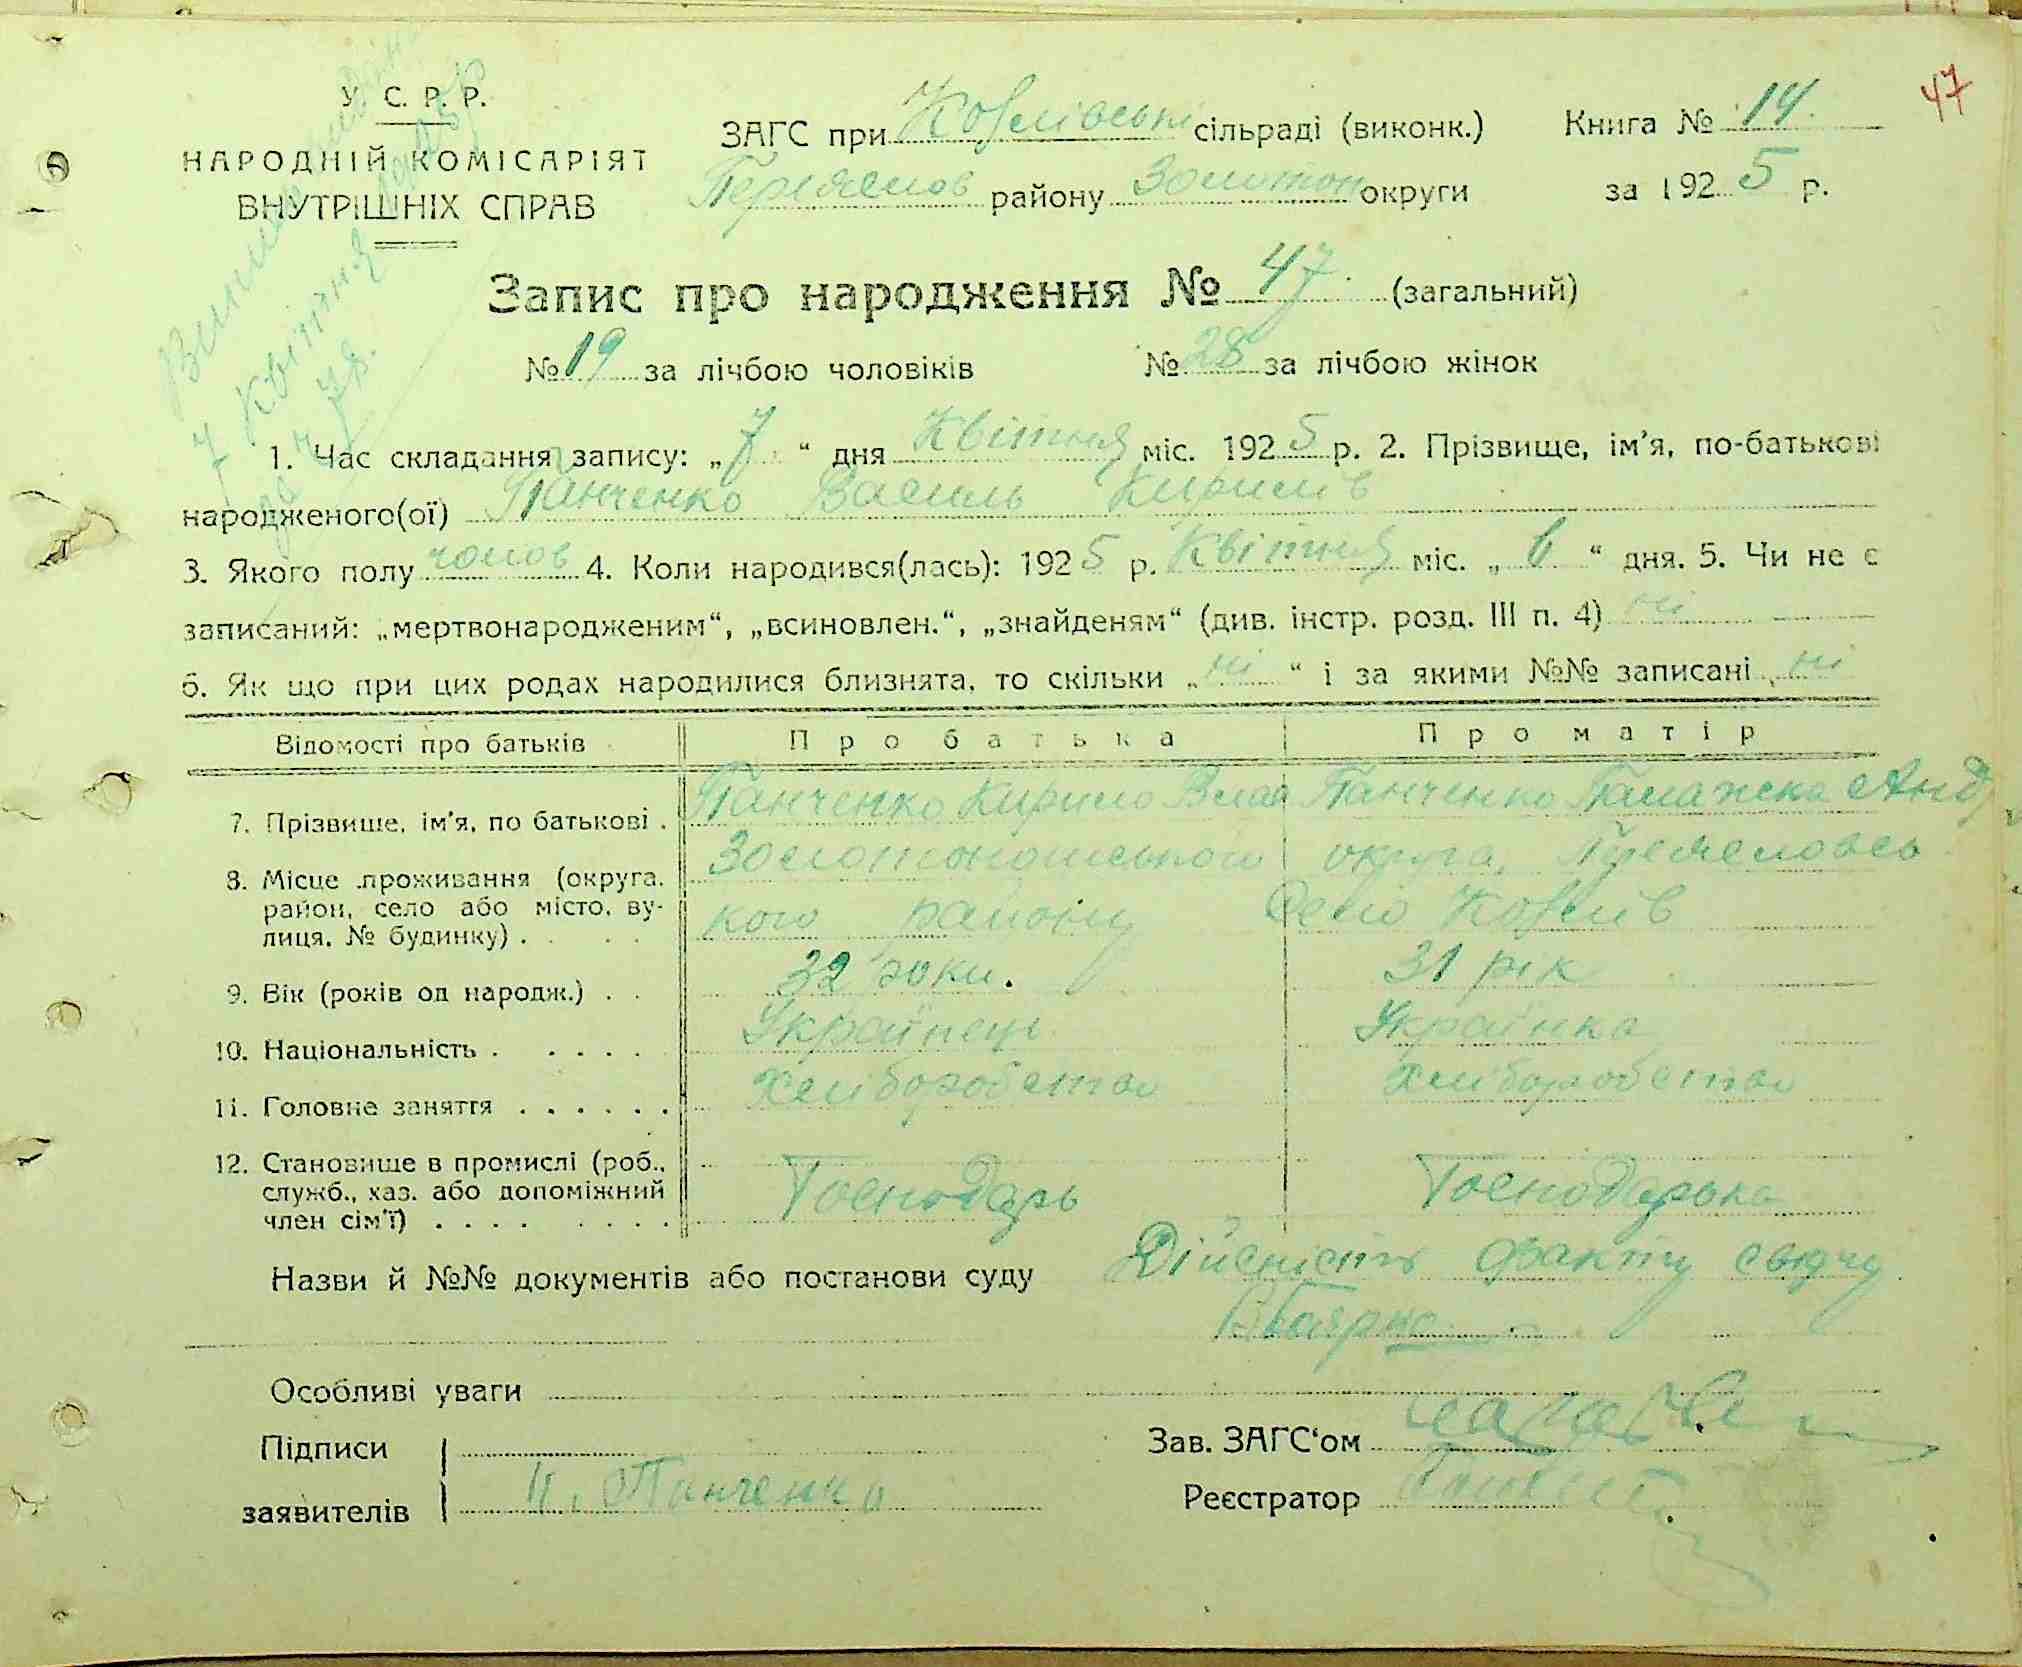 47
У. С. Р. Р.
НАРОДНІЙ КОМІСАРІЯТ
ВНУТРІШНІХ СПРАВ
ЗАГС при Ковлівській сільраді (виконк.)
Переяслов району Золотон округи
Книга № 14.
за 1925 р.
7 Квітня
Запис про народження № 47. (загальний)
№ 19 за лічбою чоловіків № 28 за лічбою жінок
1. Час складання запису: „7“ дня Квітня міс. 1925 р. 2. Прізвище, ім'я, по-батькові
народженого(ої) Панченко Василь Кирилів
3. Якого полу чолов 4. Коли народився(лась): 1925 р. Квітня міс. „6“ дня. 5. Чи не є
записаний: „мертвонародженим“, „всиновлен.“, „знайденям“ (див. інстр. розд. III п. 4) ні
6. Як що при цих родах народилися близнята, то скільки „ні“ і за якими №№ записані ні
Відомості про батьків Про батька Про матір
7. Прізвище, ім'я, по батькові . Панченко Кирило Влас Панченко Палажка Анд
8. Місце проживання (округа, район, село або місто, вулиця, № будинку) . Золотоношського округа, Переясловсь
кого району Село Ковлів
9. Вік (років од народж.) . . 32 роки. 31 рік
10. Національність . . . . . Українець Українка
11. Головне заняття . . . . . . Хліборобство Хліборобство
12. Становище в промислі (роб., служб., хаз. або допоміжний член сім'ї) . . . . Господарь Господарька
Назви й №№ документів або постанови суду Дійсність факту свідчу
Особливі уваги
Підписи
заявителів К. Панченко
Зав. ЗАГС'ом
Реєстратор